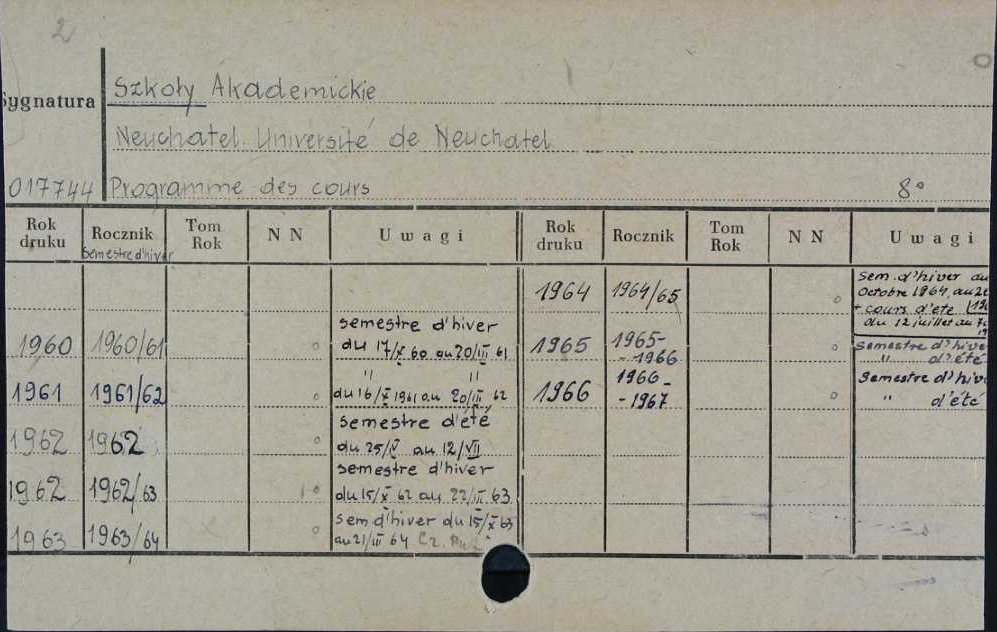 2
Szkoły Akademickie
Sygnatura
Neuchatel. Université de Neuchatel
017744 Programme des cours 8°
Rok druku Rocznik Tom Rok NN Uwagi Rok druku Rocznik Tom Rok NN Uwagi
Semestre d'hiver
1964 1964/65 Sem. d'hiver du
Octobre 1964, au
+ cours d'été
du 12 juillet au
1960 1960/61 semestre d'hiver
du 17/X 60 au 20/III 61
1965 1965-
-1966 semestre d'hive
" d'été
1961 1961/62 " "
du 16/X 1961 au 20/III 62
1966 1966-
-1967 Semestre d'hiv
" d'été
1962 1962 semestre d'été
du 25/V au 12/VII
1962 1962/63 semestre d'hiver
du 15/X 62 au 22/III 63
1963 1963/64 sem d'hiver du 15/X 63
au 21/III 64